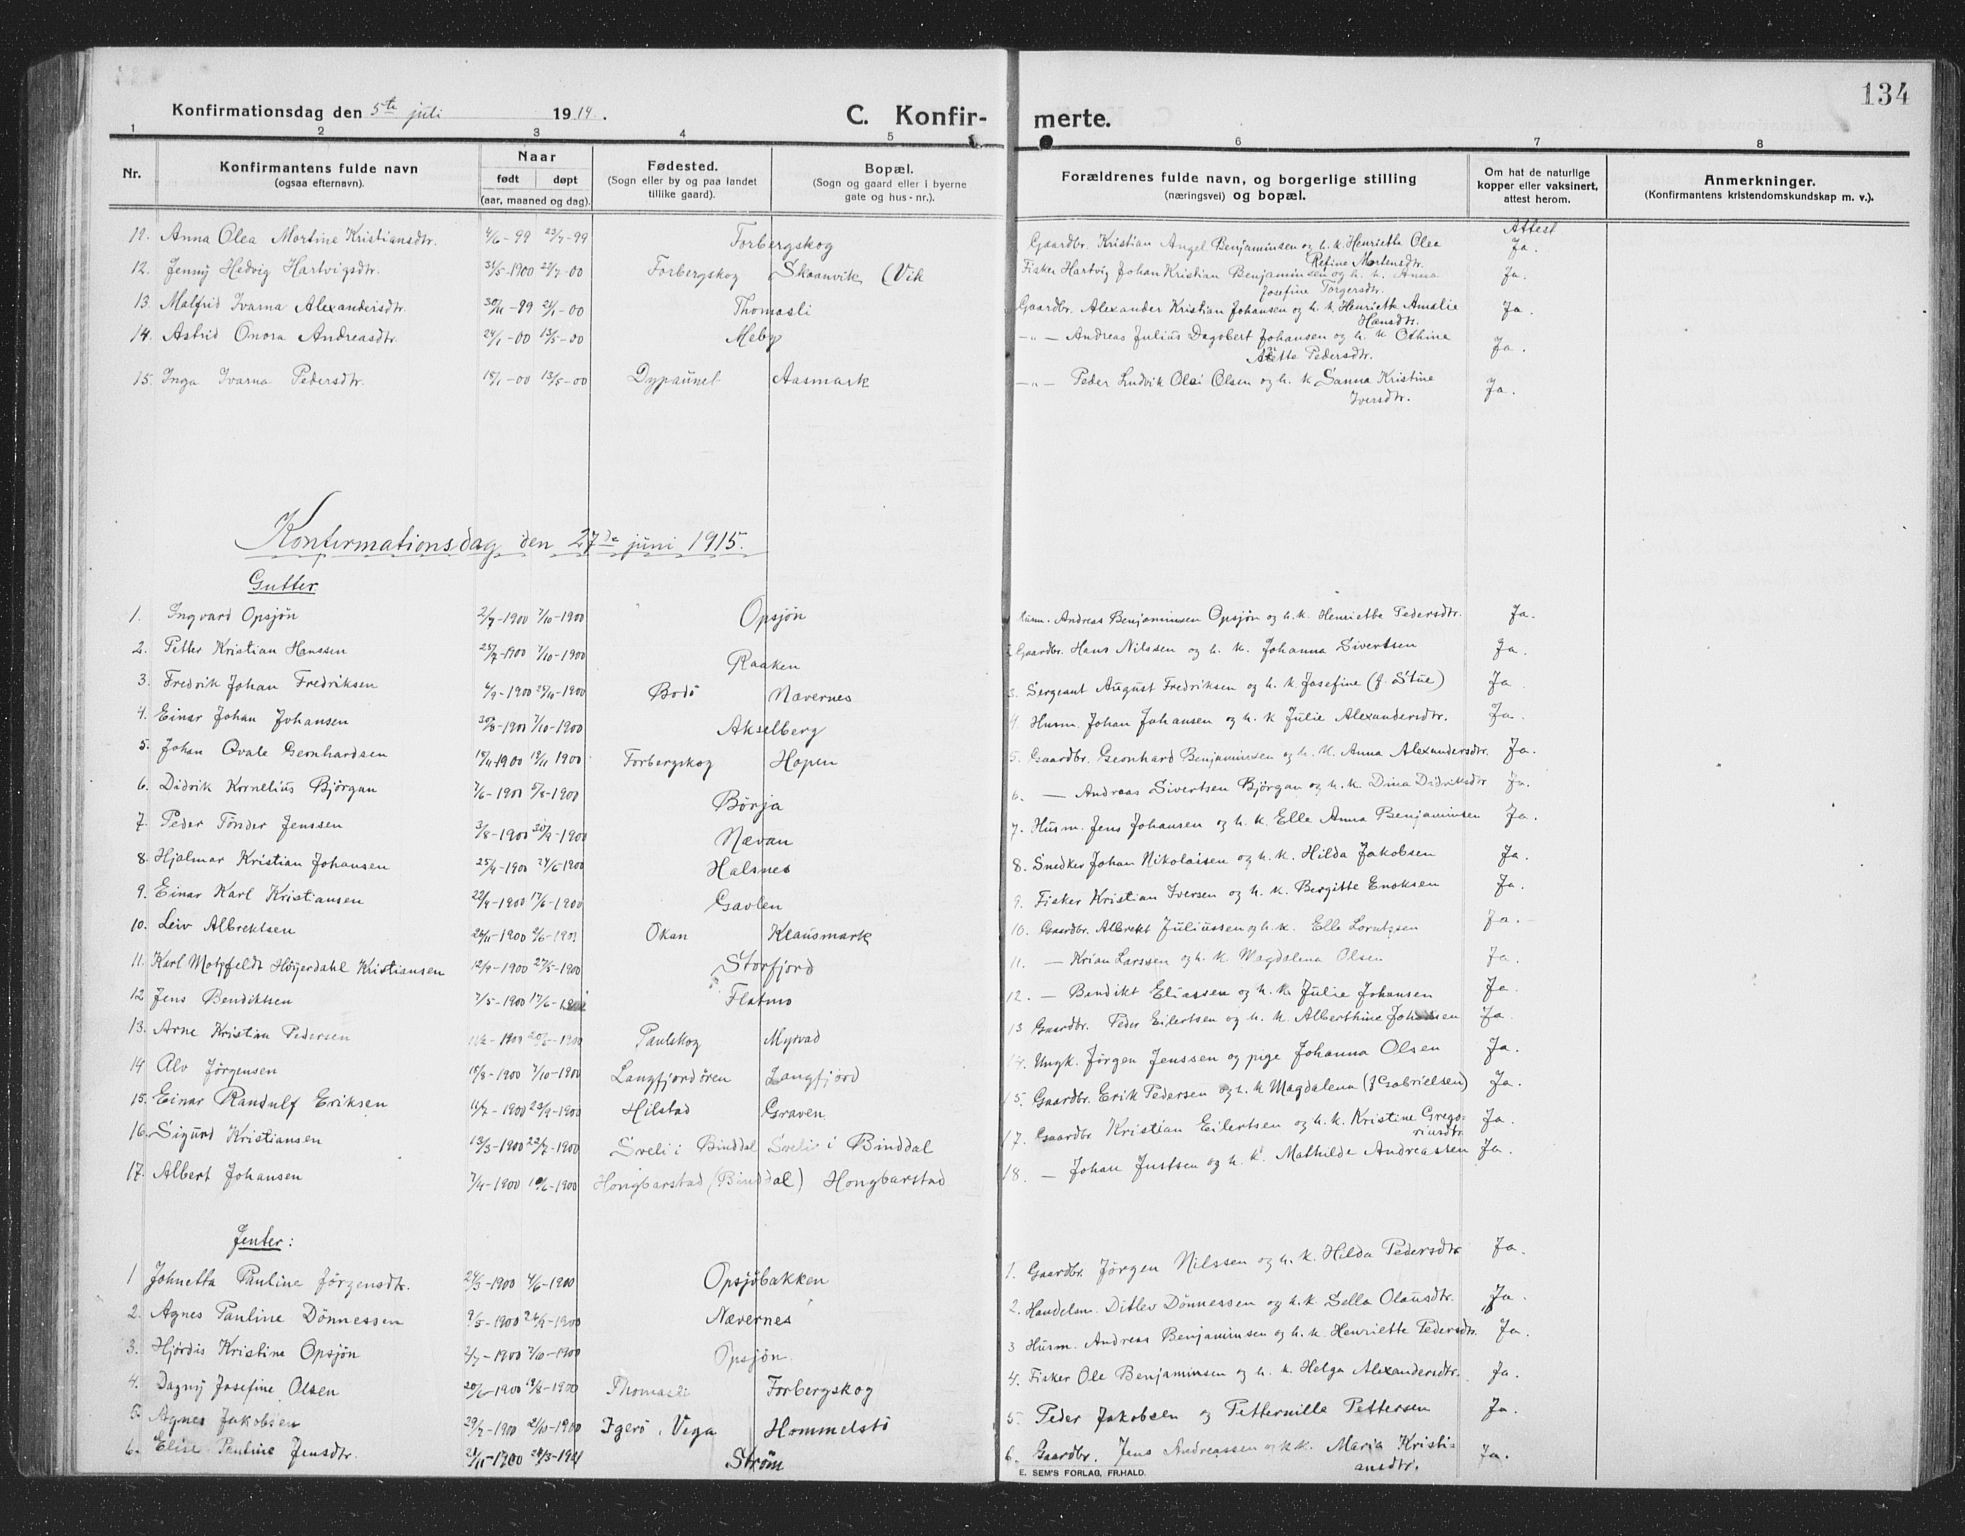 134
Konfirmationsdag den 5te juli 1914.
C. Konfirmerte.
1 2 3 4 5 6 7 8
Nr. Konfirmantens fulde navn (ogsaa efternavn). Naar født døpt (aar, maaned og dag). Fødested. (Sogn eller by og paa landet tillike gaard). Bopæl. (Sogn og gaard eller i byerne gate og hus-nr.). Forældrenes fulde navn, og borgerlige stilling (næringsvei) og bopæl. Om hat de naturlige kopper eller vaksinert, attest herom. Anmerkninger. (Konfirmantens kristendomskundskap m. v.).
Attest
11. Anna Olea Mortine Kristiansdtr. 4/6-99 23/7-99 Forbergskog Gaardbr. Kristian Angel Benjaminsen og h. k. Henrietta Olea Refine Mortensdtr. Ja.
12. Jenny Hedvig Hartvigsdtr. 31/5-1900 22/7-00 Forbergskog Skaanvik (Vik Fisker Hartvig Johan Kristian Benjaminsen og h. k. Anna Josefine Torgersdtr. Ja.
13. Malfrid Ivarna Alexandersdtr. 30/11-99 21/1-00 Thomasli Gaardbr. Alexander Kristian Johansen og h. k. Henriette Amalie Hansdtr. Ja.
14. Astrid Onora Andreasdtr. 24/1-00 13/5-00 Meby -"- Andreas Julius Dagobert Johansen og h. k Othina Pedersdtr. Ja.
15. Inga Ivarna Pedersdtr. 18/1-00 13/5-00 Dypaunet Aasmark -"- Peder Ludvik Olai Olsen og h. k Sanna Kristine Iversdtr. Ja.
Konfirmationsdag den 27de juni 1915.
Gutter.
1. Ingvard Opsjøn 2/7-1900 7/10-1900 Opsjøn Husm. Andreas Benjaminsen Opsjøn og h. k. Henriette Pedersdtr. Ja.
2. Petter Kristian Hanssen 25/7-1900 7/10-1900 Raaken Gaardbr. Hans Nilssen og h. k. Johanna Sivertsen Ja.
3. Fredrik Johan Fredriksen 4/9-1900 25/11-1900 Bodø Nævernes 3. Sergeant August Fredriksen og h. k Josefine (f. Stue) Ja.
4. Einar Johan Johansen 30/8-1900 7/10-1900 Akselberg 4. Husm. Johan Johansen og h. k Julie Alexandersdtr. Ja.
5. Johan Ovale Gernhardsen 1900 1900 Forbergskog Hopen 5. Gaardbr. Geonhard Benjaminsen og h. k. Anna Alexandersdtr. Ja.
6. Didrik Kornelius Bjørgan 7/6-1900 5/8-1900 Børja 6. — Andreas Sivertsen Bjørgan og h. k. Dina Didriksdtr Ja.
7. Peder Tønder Jenssen 3/8-1900 30/9-1900 Nævan 7. Husm. Jens Johansen og h. k. Elle Anna Benjaminsen Ja.
8. Hjalmar Kristian Johansen 25/4-1900 24/6-1900 Halsnes 8. Snedker Johan Nikolaisen og h. k. Hilda Jakobsen Ja.
9. Einar Karl Kristiansen 22/4-1900 17/6-1900 Gavlen 9. Fisker Kristian Iversen og h. k. Bergitte Enoksen Ja.
10. Leiv Albrektsen 1900 Okan Klausmark 10. Gaardbr. Albrekt Juliussen og h. k. Elle Lorntzsen Ja.
11. Karl Motzfeldt Høijerdahl Kristiansen 12/4-1900 27/5-1900 Storfjord 11. — Krian Larssen og h. k Magdalena Olsen Ja.
12 Jens Bendiktsen 7/5-1900 17/6-1900 Flatmo 12. — Bendikt Eliassen og h. k. Julie Johansen Ja.
13. Arne Kristian Pedersen 1900 1900 Paulskog Myrvad 13 Gaardbr. Peder Eilertsen og h. k. Alberthine Johansen Ja.
14 Alv Jørgensen 18/8-1900 7/10-1900 Langfjordøren Langfjord 14. Ungk. Jørgen Jenssen og pige Johanna Olsen Ja.
15. Einar Randulf Eriksen 11/7-1900 23/9-1900 Hilstad Graven 15. Gaardbr. Erik Pedersen og h. k Magdalena (f Gabrielsen) Ja.
16. Sigurd Kristiansen 13/3-1900 22/7-1900 Sveli i Binddal Sveli i Binddal 17. Gaardbr Kristian Eilertsen og h. k. Kristine Gregoriusdtr. Ja.
17. Albert Johansen 7/4-1900 10/6-1900 Hongbarstad (Binddal) Hongbarstad 18. — Johan Justsen og h. k. Mathilde Andreassen Ja.
Jenter:
1 Johnetta Pauline Jørgensdtr. 24/3-1900 4/6-1900 Opsjøbakken 1. Gaardbr. Jørgen Nilssen og h. k. Hilda Pedersdtr Ja.
2. Agnes Pauline Dønnessen 9/5-1900 24/9-1900 Nævernes 2. Handelsm. Ditlev Dønnessen og h. k. Sella Olausdtr. Ja.
3. Hjørdis Kristine Opsjøn 2/7-1900 7/10-1900 Opsjøn. 3 Husm. Andreas Benjaminsen og h. k. Henriette Pedersdtr. Ja.
4. Dagny Josefine Olsen 20/6-1900 19/8-1900 Thomasli Forbergskog 4. Fisker Ole Benjaminsen og h. k. Helga Alexandersdtr. Ja.
5. Agnes Jakobsen 29/7-1900 21/10-1900 Igerø, Vega Hommelstø 5. Peder Jakobsen og Petternille Pettersen Ja.
6. Elise Pauline Jensdtr. Strøm 6. Gaardbr. Jens Andreassen og h. k. Maria Kristiansdtr. Ja.
E. SEM'S FORLAG, FR.HALD.